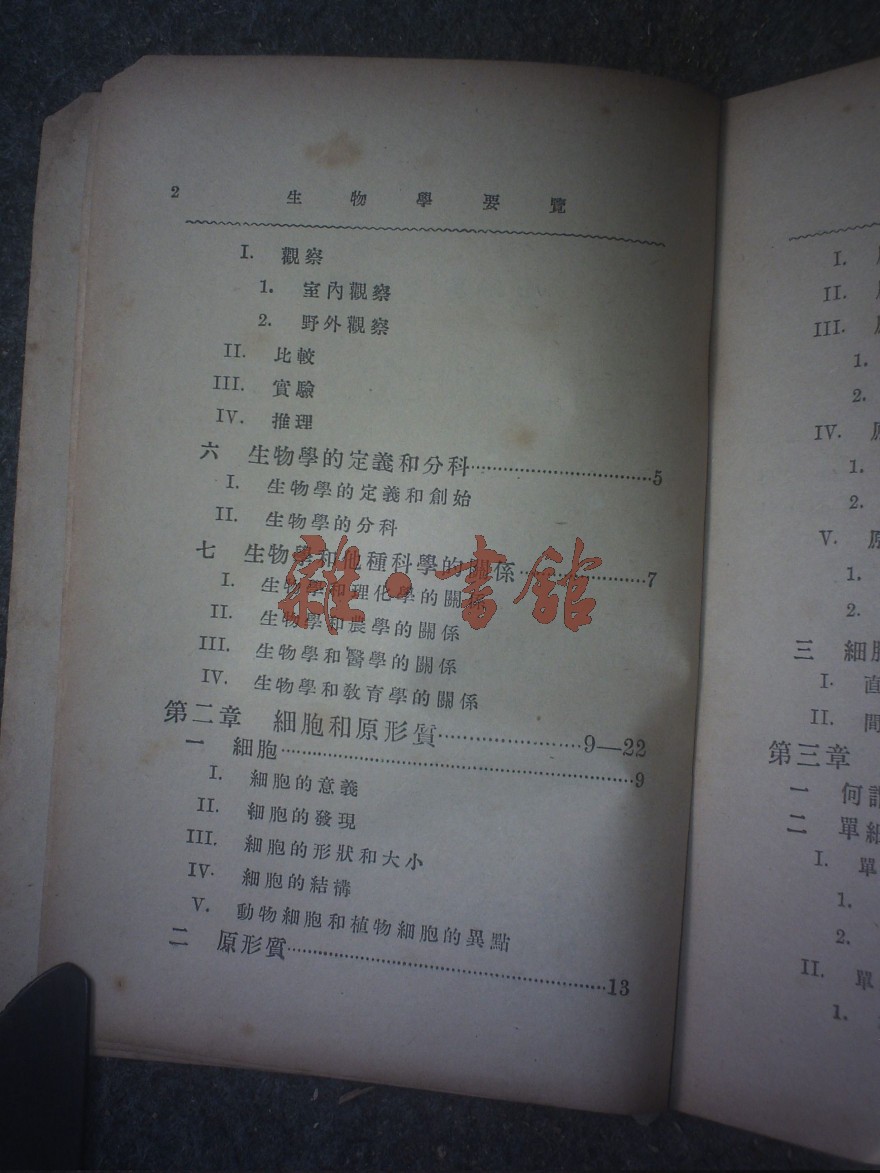 2 生物學要覽
I. 觀察
1. 室內觀察
2. 野外觀察
II. 比較
III. 實驗
IV. 推理
六 生物學的定義和分科……………………5
I. 生物學的定義和創始
II. 生物學的分科
七 生物學和他種科學的關係……………7
I. 生物學和理化學的關係
II. 生物學和農學的關係
III. 生物學和醫學的關係
IV. 生物學和敎育學的關係
第二章 細胞和原形質………………9—22
一 細胞……………………………………9
I. 細胞的意義
II. 細胞的發現
III. 細胞的形狀和大小
IV. 細胞的結構
V. 動物細胞和植物細胞的異點
二 原形質…………………………………13
雜·書館
I.
II.
III.
1.
2.
IV.
1.
2.
V.
1.
2.
三 細胞
I. 直
II. 間
第三章
一 何謂
二 單細
I. 單
1.
2.
II. 單
1.